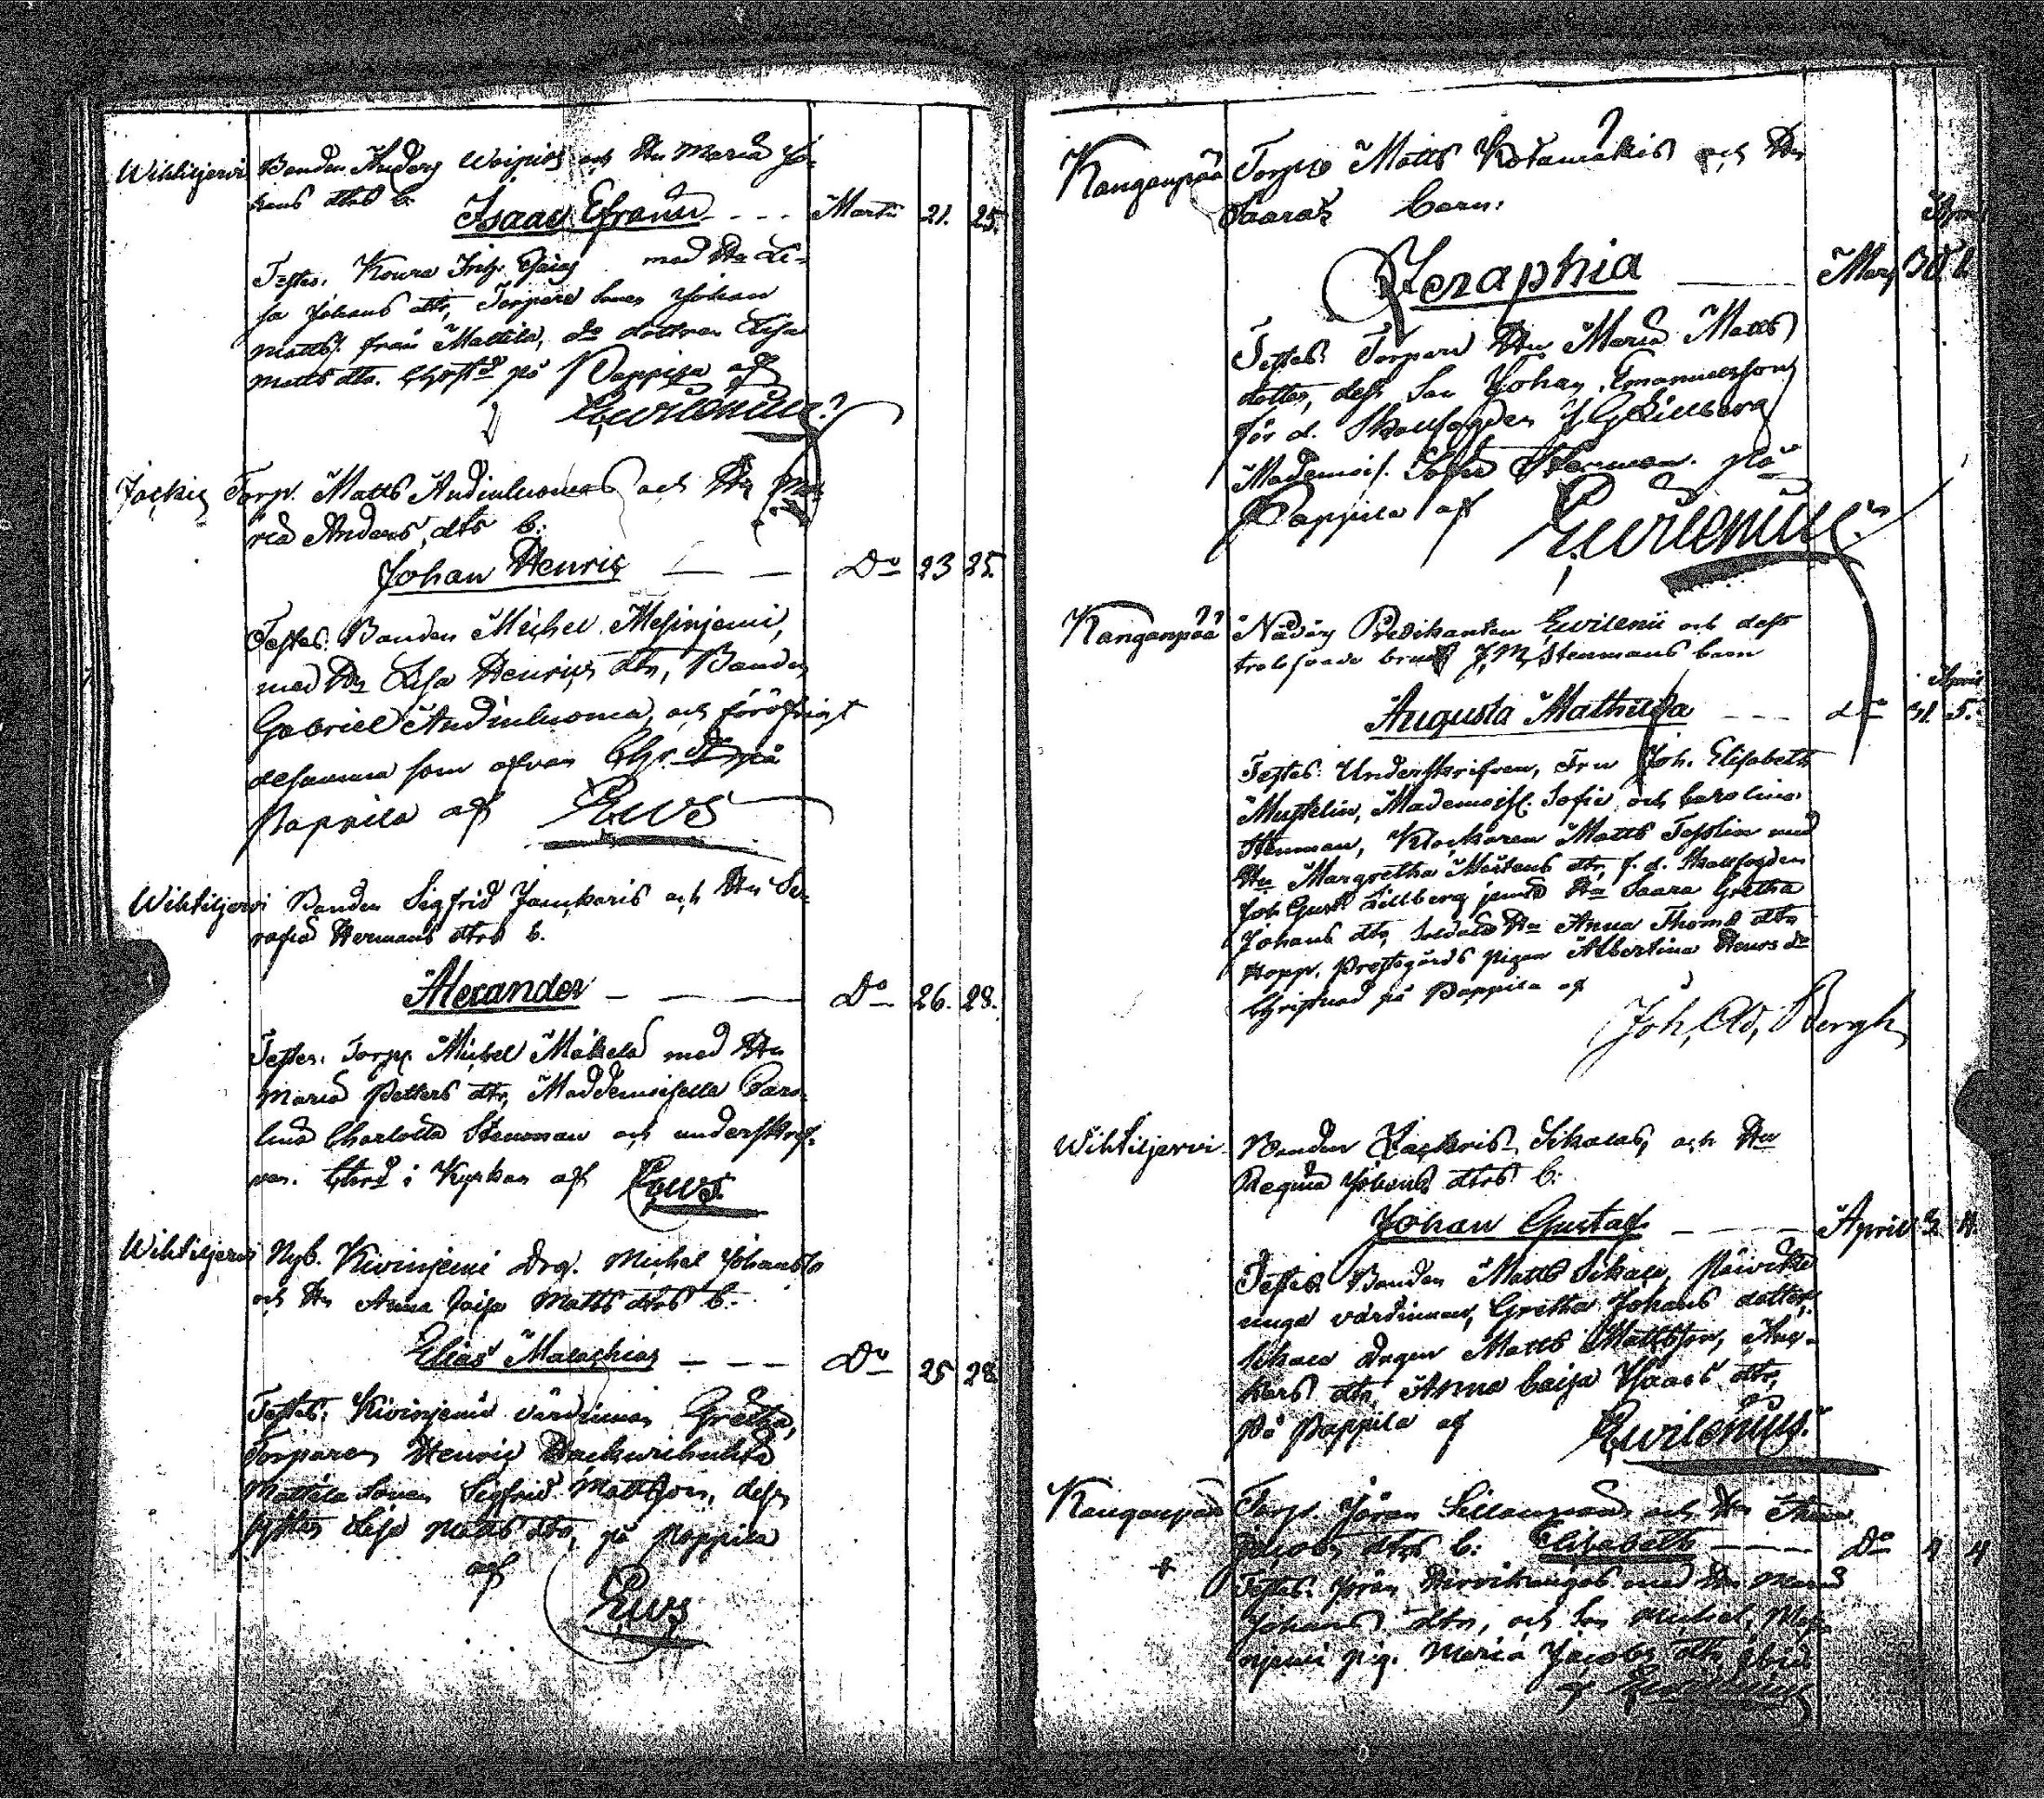 Wihtiljervi Bonden Anders Woipios och Hu Maria Jo-
hans dtrs b.
Isaac Efraim - - - Martii 21. 25.
Testes. Koura med Hu Li-
sa Johans dtr, Torpare sonen Johan
Matts. från Mattila, do dottren Lisa
Matts dtr. Chrstd på Pappila af
Ewilenius
Torp. Matts Andinluomas och Hu Ma-
ria Anders dtrs b:
Johan Henric — — Do 23 25.
Testes: Bonden Michel Mesinjemi,
med Hu Lisa Henrics dtr, Bonden
Gabriel Andinluoma, och föröfrigt
desamma som ofvan Chr.d på
Pappila af Ews
Wihtiljervi Bonden Sigfrid Jamkaris och Hu Se-
rafia Hermans dtrs b.
Alexander — — — Do 26. 28.
Testes. Torp. Michel Mäkelä med Hu
Maria Petters dtr, Maddemoiselle Caro-
lina Charlotta Stenman och underskrif-
ven. Chrd i Kyrkan af Ews.
Wihtiljervi Nyb. Kivinjemi Drg. Michel Johanss
och Hu Anna Caisa Matts dtrs b.
Elias Malachias — - - Do 25 28
Testes. Kivinjemi värdinnan Gretha,
Torparen Henric
Mattila sonen Sigfrid Mattsson, dess
syster Lisa Matts dtr, på Pappila
af
Ews
Kanganpää Torpr Matts Kotamäkis och Hu
Saaras barn: April
Zeraphia — Mars 30 1.
Testes. Torpare Hu Maria Matts
dotter, dess son Johan Emanuelsson
för d. Skallfogden J G Lillberg
Mademois. Sofie Stenman. på
Pappila af Ewilenius
Kanganpää Nådårs Predikanten Ewilenii och dess
trolofvade brud J. M. Stenmans barn
April
Augusta Mathilda - - - do 31. 5.
Testes: Underskrifven, Fru Joh. Elisabeth
Mustelin, Mademoisl. Sofie och Carolina
Stenman, Klockaren Matts Tesslin med
Hu Margretha Mårtens dtr, f. d. Skallfogden
Joh Gust. Lillberg jemte Hu Saara Gretha
Johans dtr, Soldats Hu Anna Thoms dtr
Hopp. Prestegårds pigan Albertina Henrs dr
Christnad på Pappila af
Joh, Ad, Bergh
Wihtiljervi Bonden Zackris Sikalas, och Hu
Regina Johans dtrs b:
Johan Gustaf — — April 3. 4.
Testes. Bonden Matts Sikala,
unga värdinnan, Gretha Johans dotter,
Sikala Drgen Matts Mattsson,
dtr, Anna Caisa Isaacs dtr,
På Pappila af Ewilenius.
Kanganpää Torp. Jöran Sillanpää och Hu Anna
Jacobs dtrs b: Elisabeth — — Do 4 4
Testes. Jöran Hirvikangas med Hu Maria
Johans dtr, och son Michel,
pig. Maria Jacobs dtr